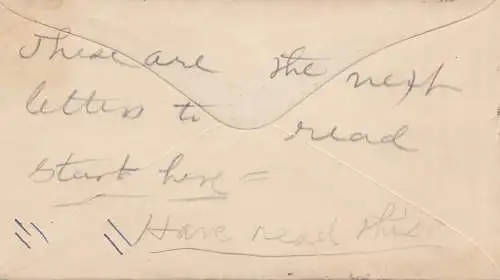 These are the next
letters to read
start here =
Have read this